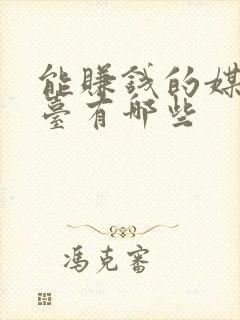 能賺錢的媒
臺有哪些
馮克審